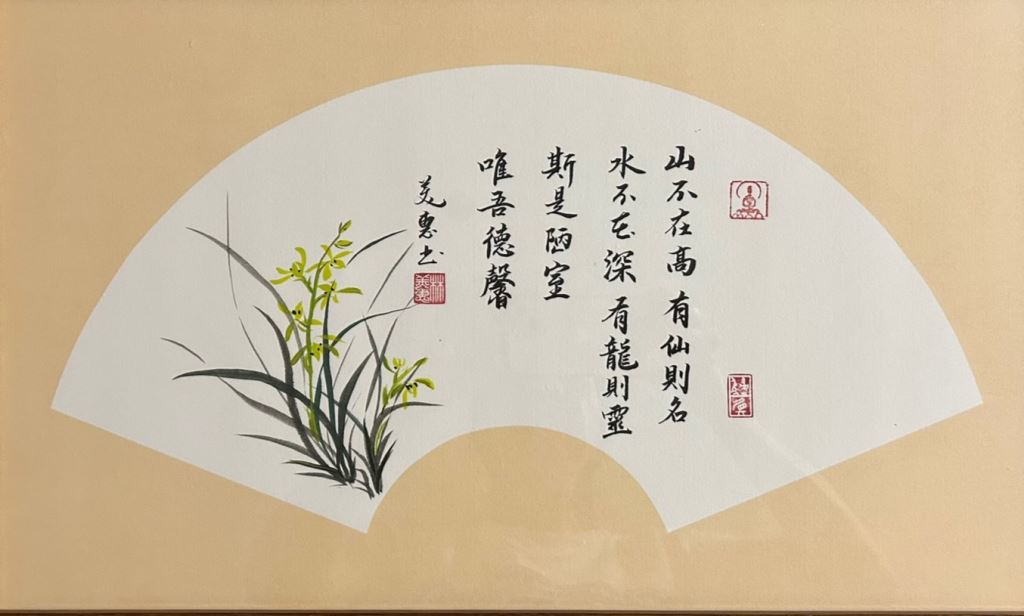 山不在高 有仙則名
水不在深 有龍則靈
斯是陋室
唯吾德馨
美惠书
林美惠